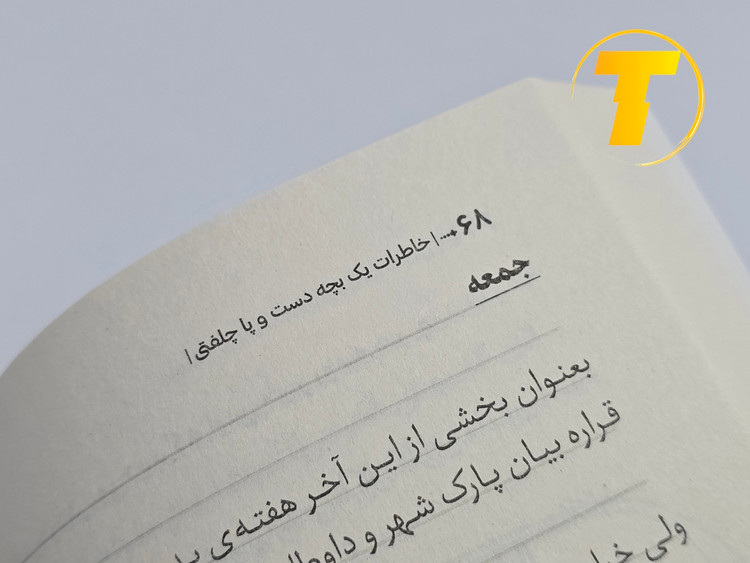 ۶۸ | خاطرات یک بچه دست و پا چلفتی |
جمعه
بعنوان بخشی از این آخر هفته‌ی
قراره بیان پارک شهر و
ولی
T